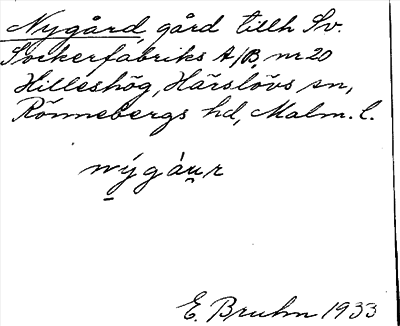 Nygård, gård tillh Sv.
Sockerfabriks A/B, nr 20
Hilleshög, Härslövs sn,
Rönnebergs hd, Malm. l.
nýgàu̠r
E. Bruhn 1933